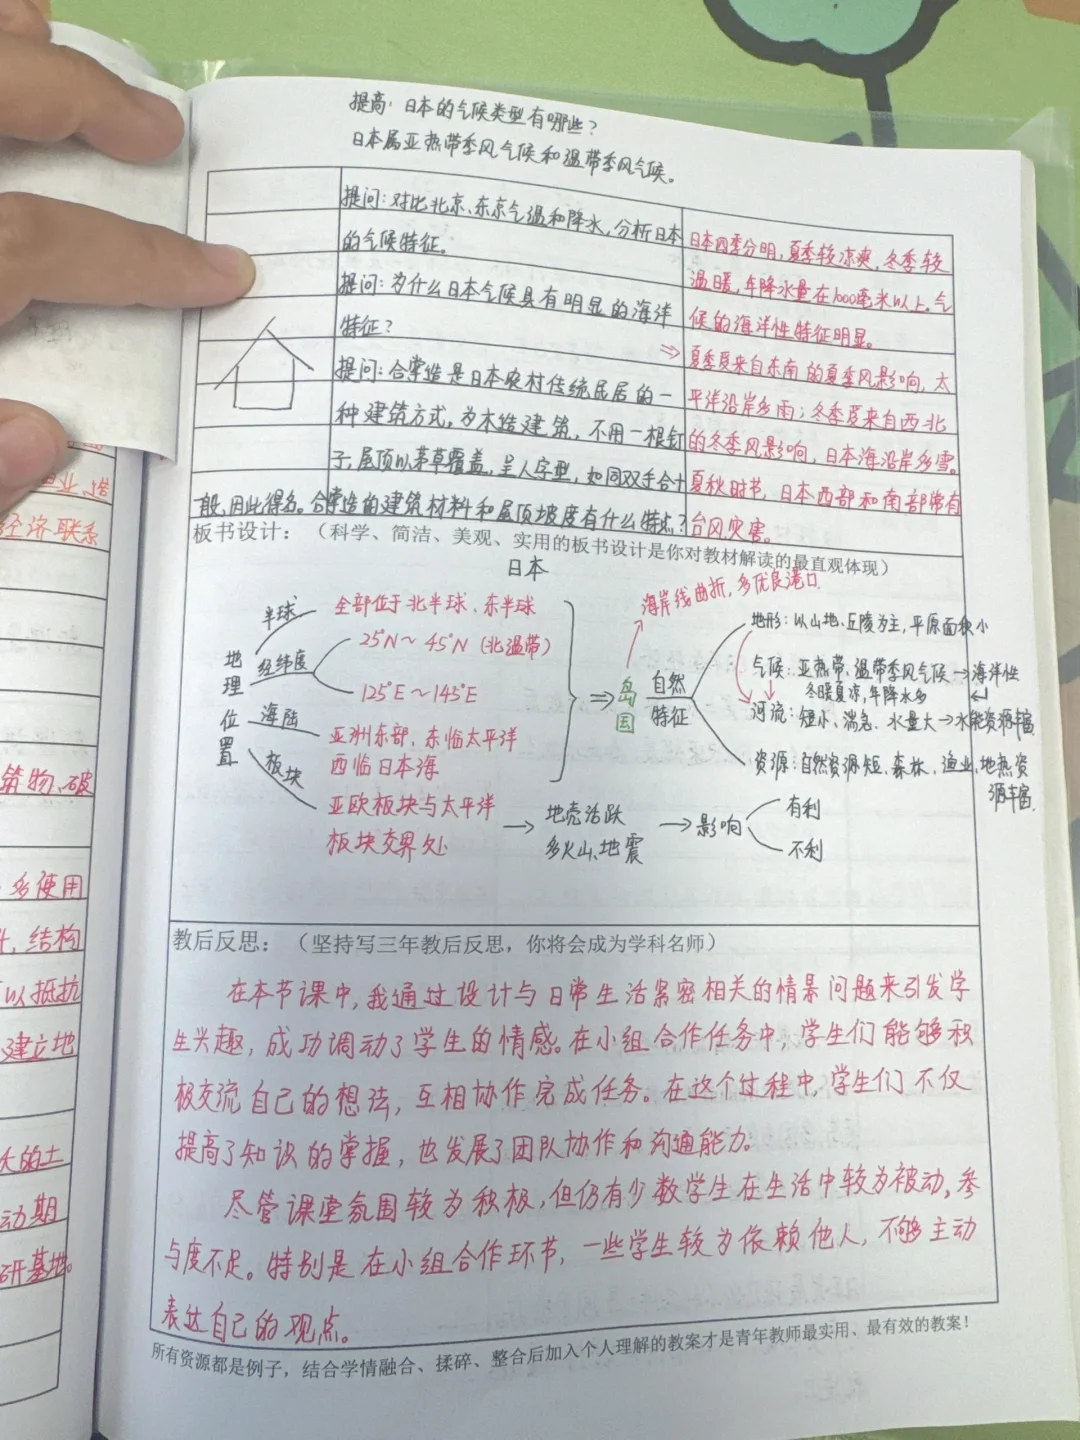 提高：日本的气候类型有哪些？
日本属亚热带季风气候和温带季风气候。
提问：对比北京、东京气温和降水，分析日本
的气候特征。
提问：为什么日本气候具有明显的海洋
特征？
提问：合掌造是日本农村传统民居的一
种建筑方式，为木造建筑，不用一根钉
子，屋顶以茅草覆盖，呈人字型，如同双手合十
般，因此得名。合掌造的建筑材料和屋顶坡度有什么特点？
日本四季分明，夏季较凉爽，冬季较
温暖，年降水量在1000毫米以上。气
候的海洋性特征明显。
⇒夏季受来自东南的夏季风影响，太
平洋沿岸多雨；冬季受来自西北
的冬季风影响，日本海沿岸多雪。
夏秋时节，日本西部和南部常有
台风灾害。
板书设计：（科学、简洁、美观、实用的板书设计是你对教材解读的最直观体现）
日本
地理位置
半球
全部位于北半球、东半球
经纬度
25°N～45°N（北温带）
125°E～145°E
海陆
亚洲东部、东临太平洋
西临日本海
板块
亚欧板块与太平洋
板块交界处
→地壳活跃
多火山、地震
→影响
有利
不利
⇒岛国
海岸线曲折，多优良港口
自然
特征
地形：以山地、丘陵为主，平原面积小
气候：亚热带、温带季风气候→海洋性
冬暖夏凉，年降水多
河流：短小、湍急、水量大→水能资源丰富
资源：自然资源短、森林、渔业、地热资
源丰富.
教后反思：（坚持写三年教后反思，你将会成为学科名师）
在本节课中，我通过设计与日常生活紧密相关的情景问题来引发学
生兴趣，成功调动了学生的情感。在小组合作任务中，学生们能够积
极交流自己的想法，互相协作完成任务。在这个过程中，学生们不仅
提高了知识的掌握，也发展了团队协作和沟通能力。
尽管课堂氛围较为积极，但仍有少数学生在生活中较为被动，参
与度不足。特别是在小组合作环节，一些学生较为依赖他人，不够主动
表达自己的观点。
所有资源都是例子，结合学情融合、揉碎、整合后加入个人理解的教案才是青年教师最实用、最有效的教案！
经济联系
筑物、破
多使用
结构
以抵抗
建立地
大的土
动期
研基地。